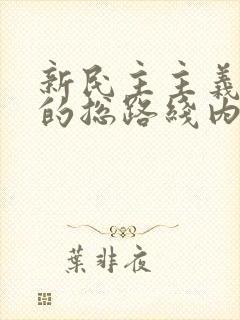 新民主主義
的总路綫内
葉非夜